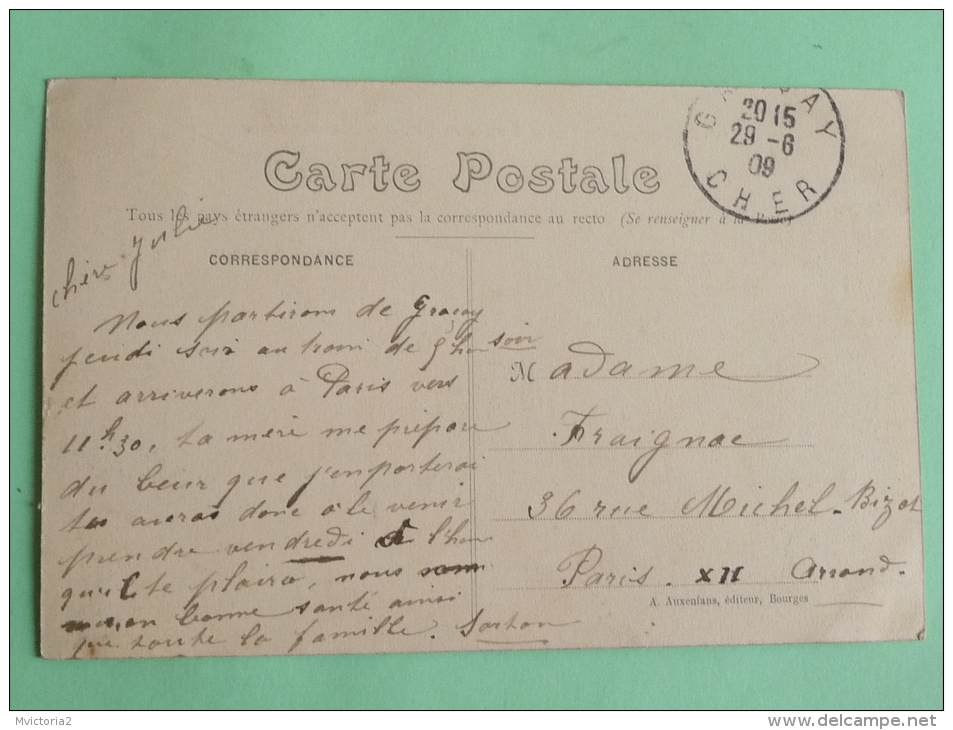 Carte Postale
Tous les pays étrangers n'acceptent pas la correspondance au recto (Se renseigner à la Poste)
CORRESPONDANCE
chère Julie
Nous partirons de Graçay
jeudi soir au train de 5 h soir
et arriverons à Paris vers
11h30, ta mère me prépare
du beur que j'emporterai
tu auras donc à le venir
prendre vendredi à l'heure
qu'il te plaira, nous
en bonne santé ainsi
que toute la famille.
GRAÇAY
20 15
29 -6
09
CHER
ADRESSE
Madame
Fraignac
36 rue Michel-Bizot
Paris. XII Arrond.
A. Auxenfans, éditeur, Bourges
Mvictoria2
delcampe.net